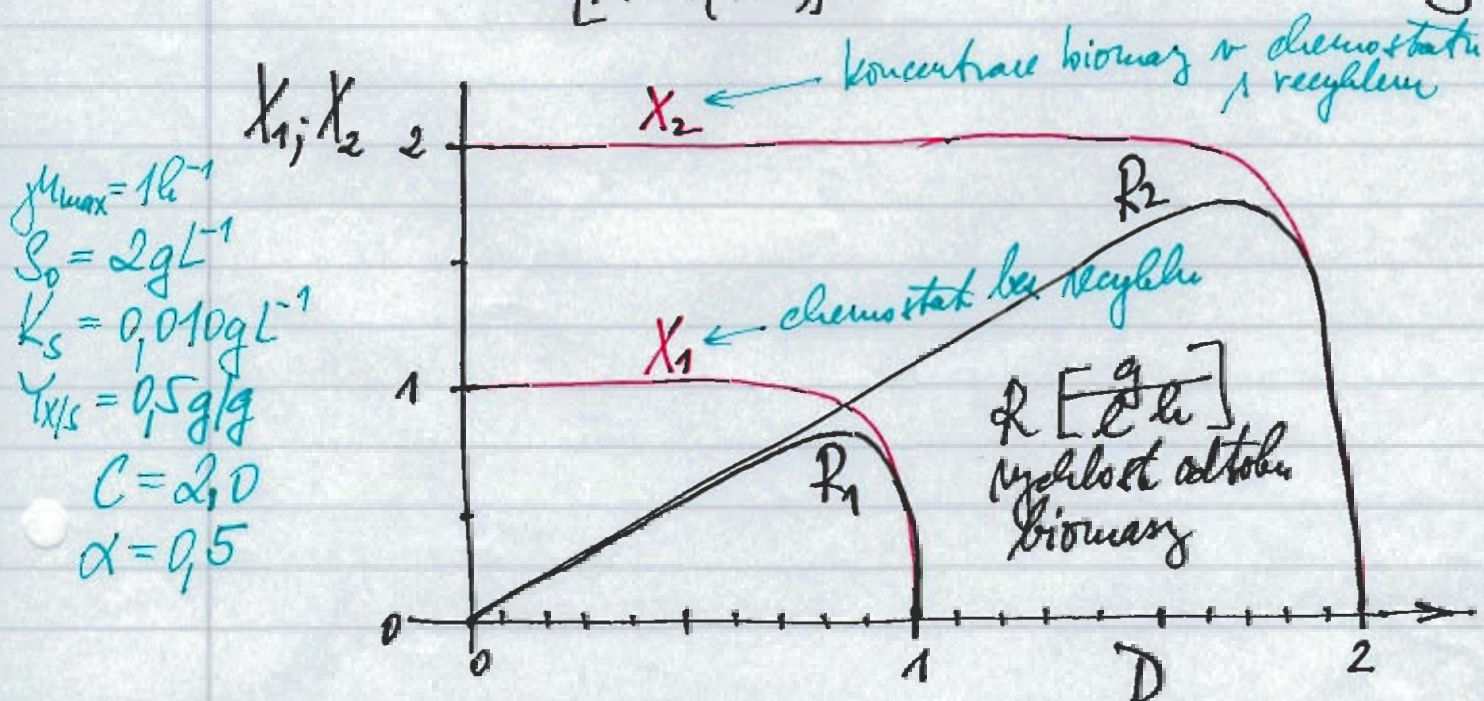 X₂ ← koncentrace biomasy v chemostatu
s recyklem
X₁; X₂
2
R2
μmax = 1h⁻¹
S₀ = 2gL⁻¹
Ks = 0,010gL⁻¹
Yx/s = 0,5g/g
C = 2,0
α = 0,5
X₁ ← chemostat bez recyklu
1
R₁
R [g/l h]
rychlost odtoku
biomasy
0
0 1 D 2